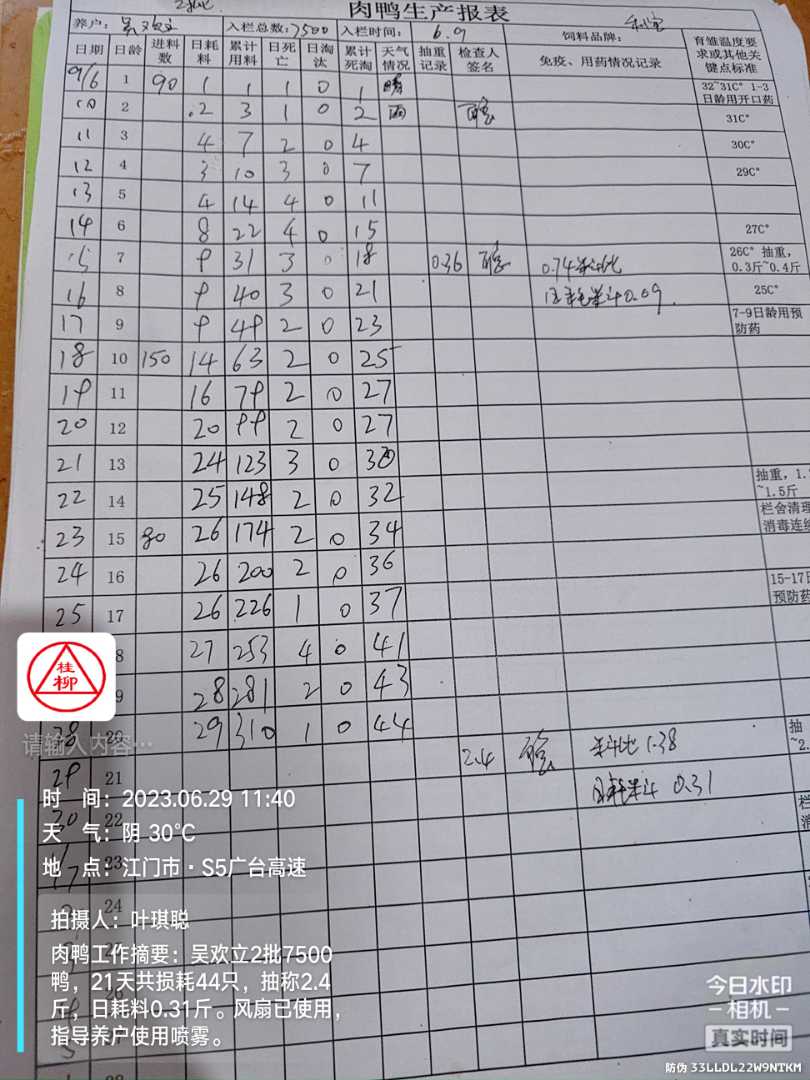 2批
肉鸭生产报表
养户: 吴欢立 入栏总数: 7500 入栏时间: 6.9 饲料品牌:
日期 日龄 进料数 日耗料 累计用料 日死亡 日淘汰 累计死淘 天气情况 抽重记录 检查人签名 免疫、用药情况记录 育雏温度要求或其他关键点标准
9/6 1 90 1 1 1 0 1 晴 32~31C° 1-3日龄用开口药
10 2 .2 3 1 0 2 雨 31C°
11 3 4 7 2 0 4 30C°
12 4 3 10 3 0 7 29C°
13 5 4 14 4 0 11
14 6 8 22 4 0 15 27C°
15 7 9 31 3 0 18 0.36 0.74料比 26C° 抽重，0.3斤~0.4斤
16 8 9 40 3 0 21 日耗料斗0.09. 25C°
17 9 9 49 2 0 23 7-9日龄用预防药
18 10 150 14 63 2 0 25
19 11 16 79 2 0 27
20 12 20 99 2 0 27
21 13 24 123 3 0 30
22 14 25 148 2 0 32 抽重，1.
~1.5斤
23 15 80 26 174 2 0 34 栏舍清理
消毒连续
24 16 26 200 2 0 36
25 17 26 226 1 0 37 15-17日
预防药
8 27 253 4 0 41
9 28 281 2 0 43
28 20 29 310 1 0 44 抽
~2.
29 21 2.4 料比 1.38
30 22 日耗料斗 0.31
23
24
桂柳
请输入内容…
时 间：2023.06.29 11:40
天 气：阴 30℃
地 点：江门市·S5广台高速
拍摄人：叶琪聪
肉鸭工作摘要：吴欢立2批7500
鸭，21天共损耗44只，抽称2.4
斤，日耗料0.31斤。风扇已使用，
指导养户使用喷雾。
今日水印
相机
真实时间
防伪 33LLDL22W9NTKM